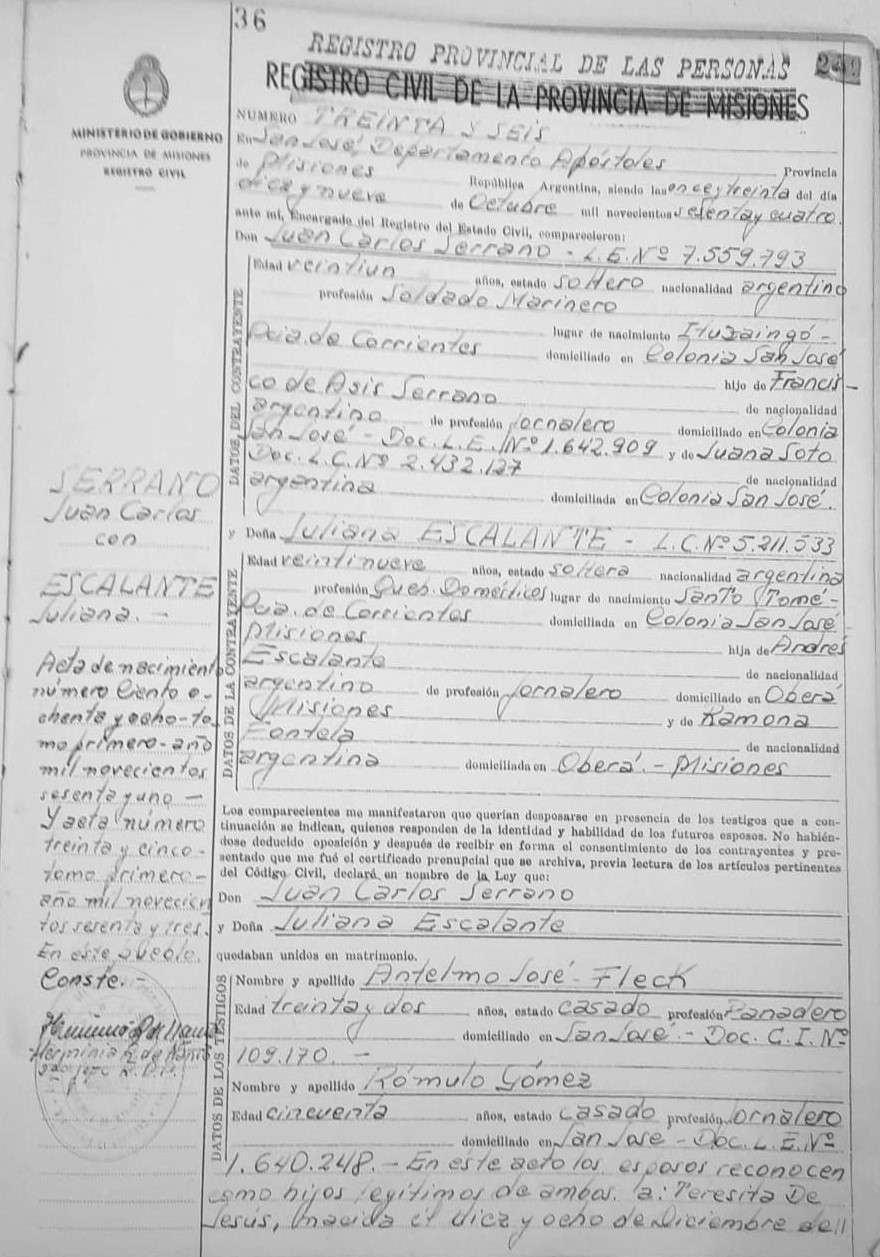 36
REGISTRO PROVINCIAL DE LAS PERSONAS 249
REGISTRO CIVIL DE LA PROVINCIA DE MISIONES
MINISTERIO DE GOBIERNO
PROVINCIA DE MISIONES
REGISTRO CIVIL
NUMERO TREINTA y SEIS
En San José, Departamento Apóstoles Provincia
de Misiones República Argentina, siendo las once y treinta del día
diez y nueve de Octubre mil novecientos sesenta y cuatro,
ante mi, Encargado del Registro del Estado Civil, comparecieron:
Don Juan Carlos Serrano - L.E. Nº 7.559.793
DATOS DEL CONTRAYENTE
Edad veintiun años, estado soltero nacionalidad argentino
profesión Soldado Marinero
lugar de nacimiento Ituzaingó -
Pcia. de Corrientes domiciliado en Colonia San José
hijo de Francis-
co de Asis Serrano de nacionalidad
argentino de profesión jornalero domiciliado en Colonia
San José - Doc. L.E. Nº 1.642.909 y de Juana Soto
Doc. L.C. Nº 2.432.127 de nacionalidad
argentina domiciliada en Colonia San José.
y Doña Juliana ESCALANTE - L.C. Nº 5.211.533
DATOS DE LA CONTRAYENTE
Edad veintinueve años, estado soltera nacionalidad argentina
profesión Queh. Domésticos lugar de nacimiento Santo Tomé -
Pcia. de Corrientes domiciliado en Colonia San José -
Misiones hija de Andrés
Escalante de nacionalidad
argentino de profesión jornalero domiciliado en Oberá
Misiones y de Ramona
Fontela de nacionalidad
argentina domiciliada en Oberá. - Misiones
Los comparecientes me manifestaron que querían desposarse en presencia de los testigos que a con-
tinuación se indican, quienes responden de la identidad y habilidad de los futuros esposos. No habién-
dose deducido oposición y después de recibir en forma el consentimiento de los contrayentes y pre-
sentado que me fué el certificado prenupcial que se archiva, previa lectura de los artículos pertinentes
del Código Civil, declaré en nombre de la Ley que:
Don Juan Carlos Serrano
y Doña Juliana Escalante
quedaban unidos en matrimonio.
DATOS DE LOS TESTIGOS
Nombre y apellido Antelmo José - Fleck
Edad treinta y dos años, estado casado profesión Panadero
domiciliado en San José. - Doc. C.I. Nº
109.170. -
Nombre y apellido Rómulo Gómez
Edad cincuenta años, estado casado profesión Jornalero
domiciliado en San José - Doc. L.E. Nº
1.640.248. - En este acto los esposos reconocen
como hijos legitimos de ambos. a: Teresita De
Jesús, nacida el diez y ocho de Diciembre del
SERRANO
Juan Carlos
con
ESCALANTE
Juliana. -
Acta de nacimiento
número Ciento o-
chenta y ocho - to-
mo primero - año
mil novecientos
sesenta y uno -
Y acta número
treinta y cinco -
tomo primero -
año mil novecien
tos sesenta y tres.
En este pueblo.
Conste. -